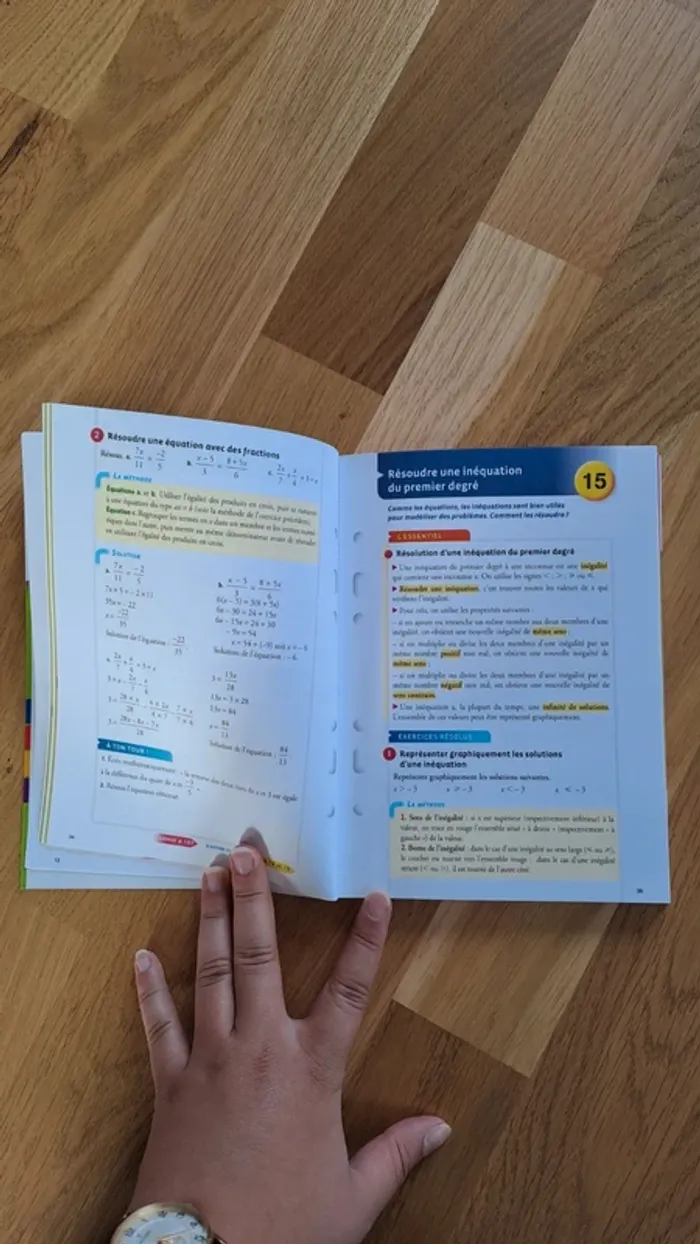 2 Résoudre une équation avec des fractions
Résous. a. 7x/11 = -2/5 b. x - 5/3 = 8 + 5x/6 c. 2x/7 + x/4 + 3 = x
LA MÉTHODE
Équations a. et b. Utiliser l'égalité des produits en croix, puis se ramener
à une équation du type ax = b (voir la méthode de l'exercice précédent).
Équation c. Regrouper les termes en x dans un membre et les termes numé-
riques dans l'autre, puis mettre au même dénominateur avant de résoudre
en utilisant l'égalité des produits en croix.
SOLUTION
a. 7x/11 = -2/5
7x × 5 = -2 × 11
35x = -22
x = -22/35
Solution de l'équation : -22/35
b. x - 5/3 = 8 + 5x/6
6(x - 5) = 3(8 + 5x)
6x - 30 = 24 + 15x
6x - 15x = 24 + 30
- 9x = 54
x = 54 ÷ (-9) soit x = -6
Solution de l'équation : -6.
c. 2x/7 + x/4 + 3 = x
3 = x - 2x/7 - x/4
3 = 28 × x/28 - 4 × 2x/4 × 7 - 7 × x/7 × 4
3 = 28x - 8x - 7x/28
3 = 13x/28
13x = 3 × 28
13x = 84
x = 84/13
Solution de l'équation : 84/13
À TON TOUR !
1. Écris mathématiquement : « la somme des deux tiers de x et 3 est égale
à la différence du quart de x et -3/5 »
2. Résous l'équation obtenue.
12
Résoudre une inéquation
du premier degré
15
Comme les équations, les inéquations sont bien utiles
pour modéliser des problèmes. Comment les résoudre ?
L'ESSENTIEL
Résolution d'une inéquation du premier degré
Une inéquation du premier degré à une inconnue est une inégalité
qui contient une inconnue x. On utilise les signes < ; > ; ≥ ou ≤.
Résoudre une inéquation, c'est trouver toutes les valeurs de x qui
vérifient l'inégalité.
Pour cela, on utilise les propriétés suivantes :
– si on ajoute ou retranche un même nombre aux deux membres d'une
inégalité, on obtient une nouvelle inégalité de même sens ;
– si on multiplie ou divise les deux membres d'une inégalité par un
même nombre positif non nul, on obtient une nouvelle inégalité de
même sens ;
– si on multiplie ou divise les deux membres d'une inégalité par un
même nombre négatif non nul, on obtient une nouvelle inégalité de
sens contraire.
Une inéquation a, la plupart du temps, une infinité de solutions.
L'ensemble de ces valeurs peut être représenté graphiquement.
EXERCICES RÉSOLUS
1 Représenter graphiquement les solutions
d'une inéquation
Représente graphiquement les solutions suivantes.
x > -3 x ≥ -3 x < -3 x ≤ -3
LA MÉTHODE
1. Sens de l'inégalité : si x est supérieur (respectivement inférieur) à la
valeur, on trace en rouge l'ensemble situé « à droite » (respectivement « à
gauche ») de la valeur.
2. Borne de l'inégalité : dans le cas d'une inégalité au sens large (≤ ou ≥),
le crochet est tourné vers l'ensemble rouge ; dans le cas d'une inégalité
stricte (< ou >), il est tourné de l'autre côté.